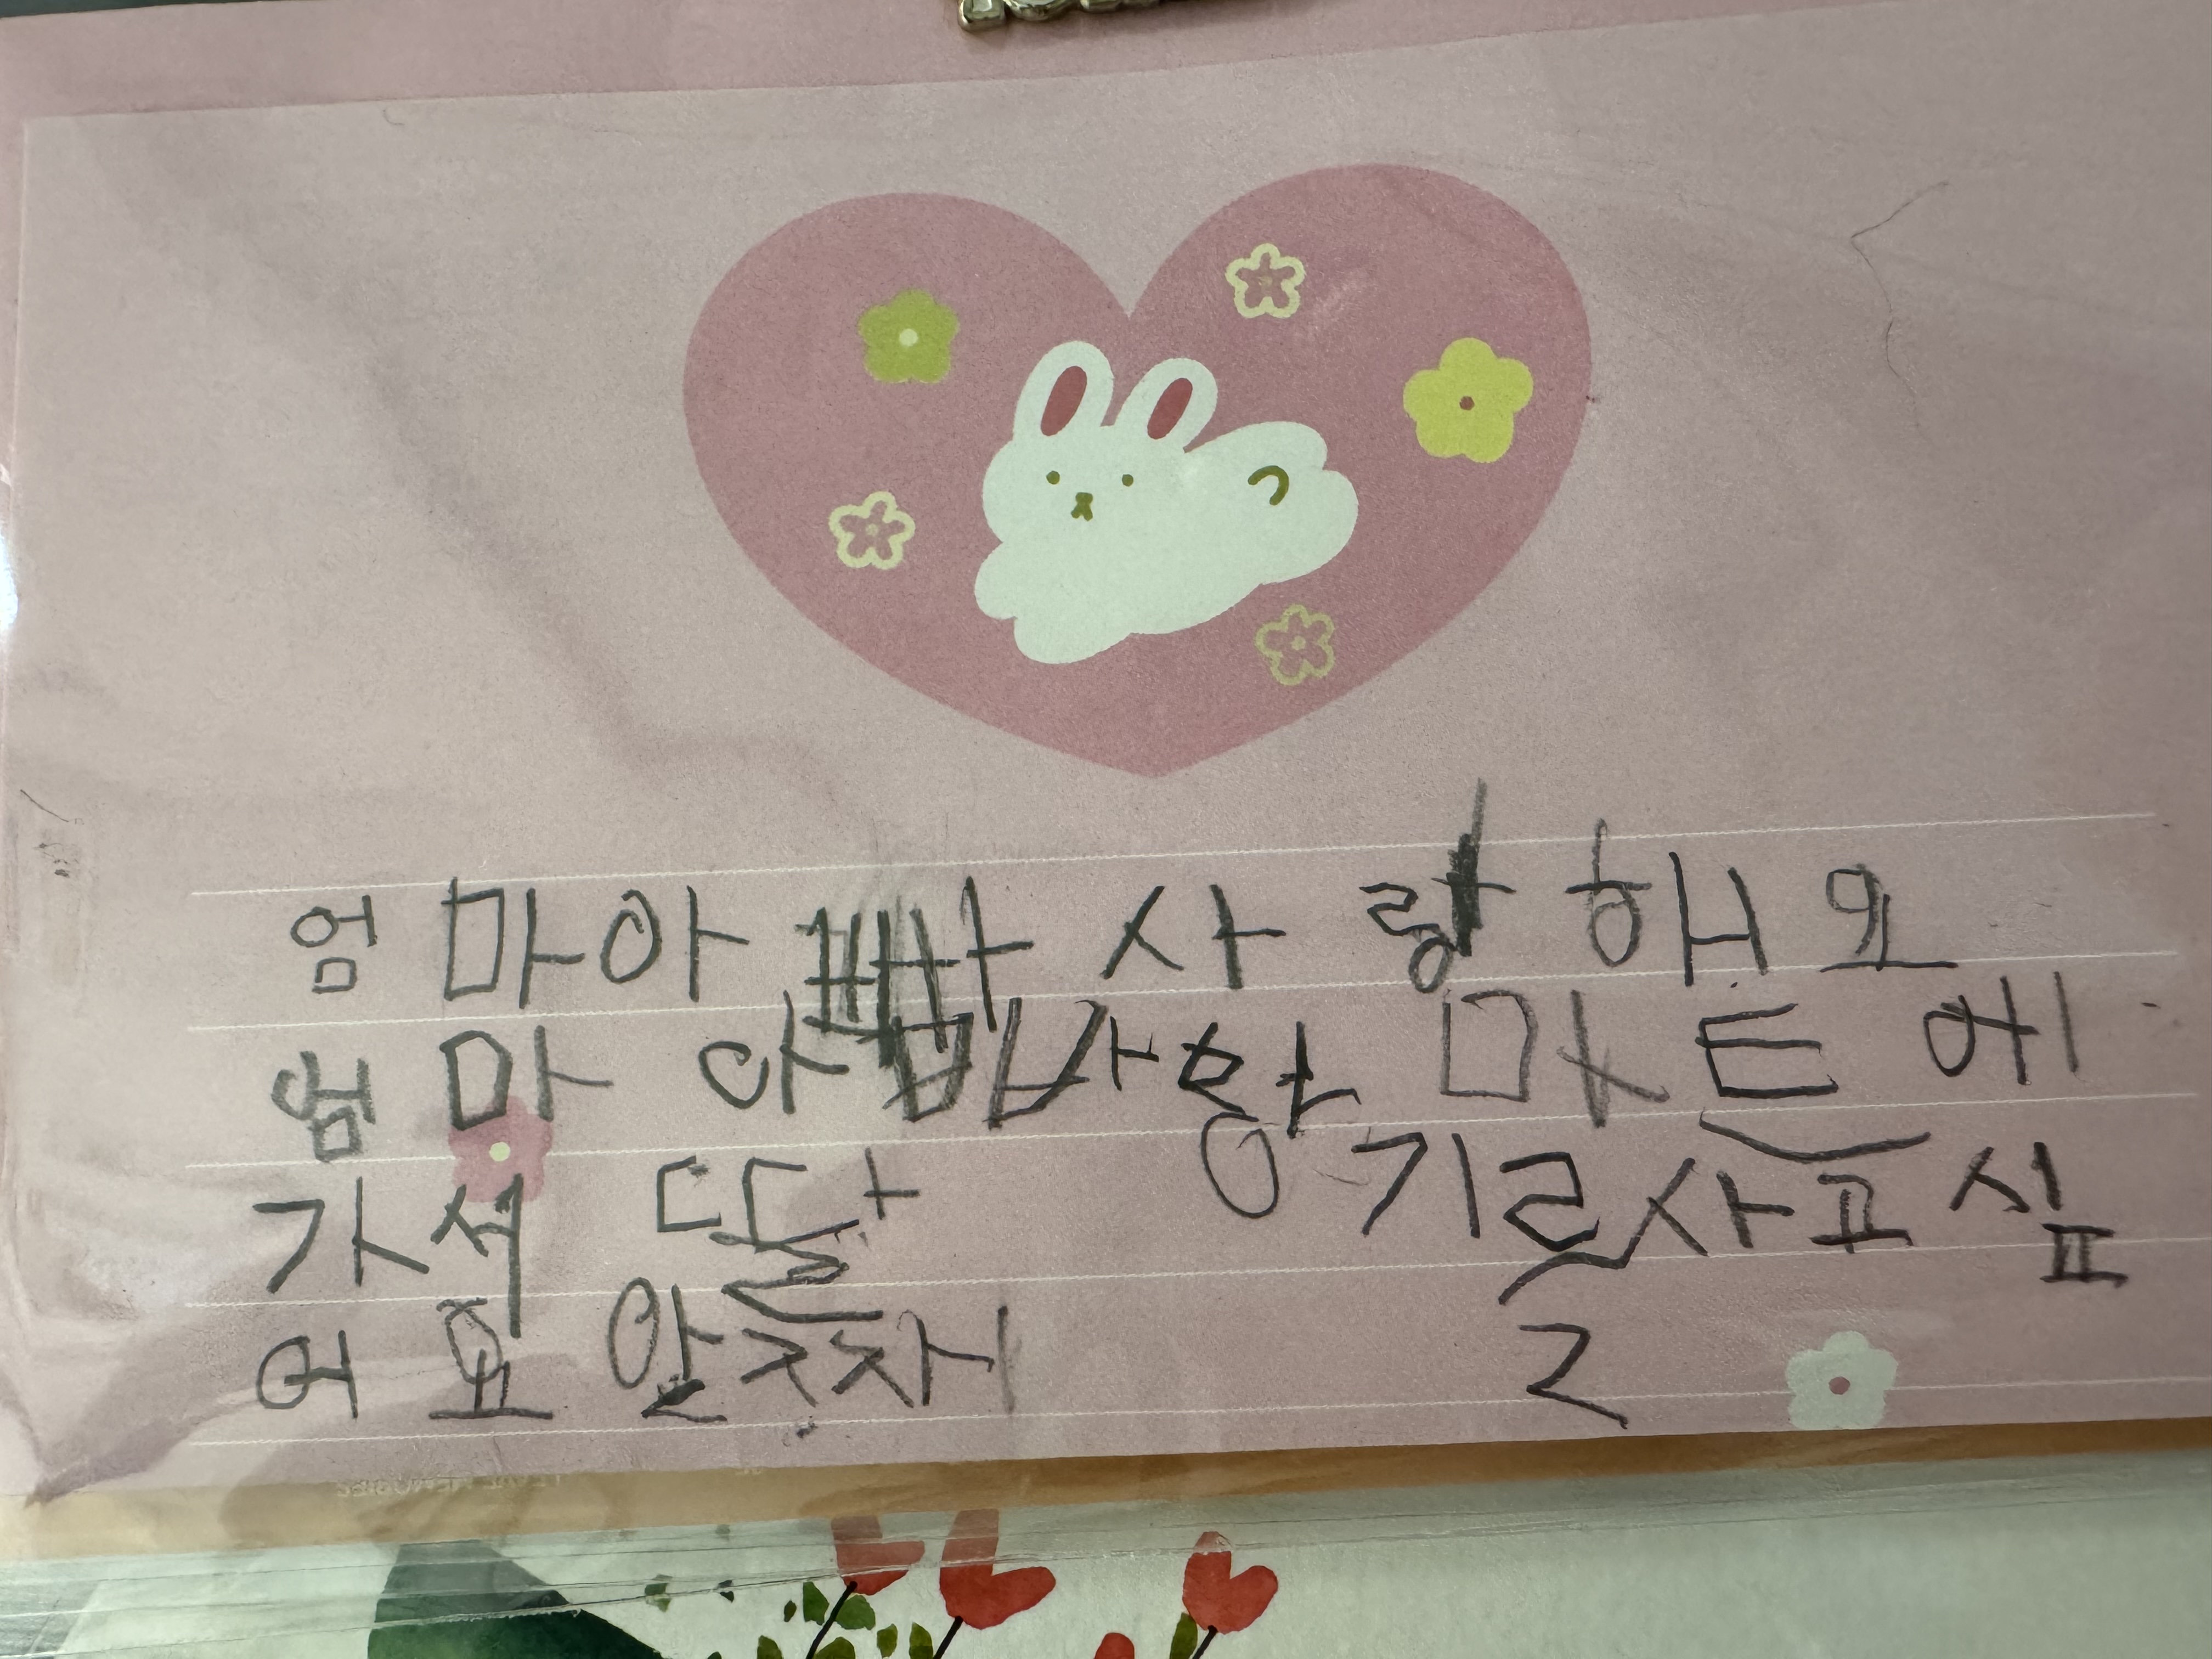 엄마아빠사랑해요
엄마아빠랑마트에
가서딸기를사고싶
어요알찌